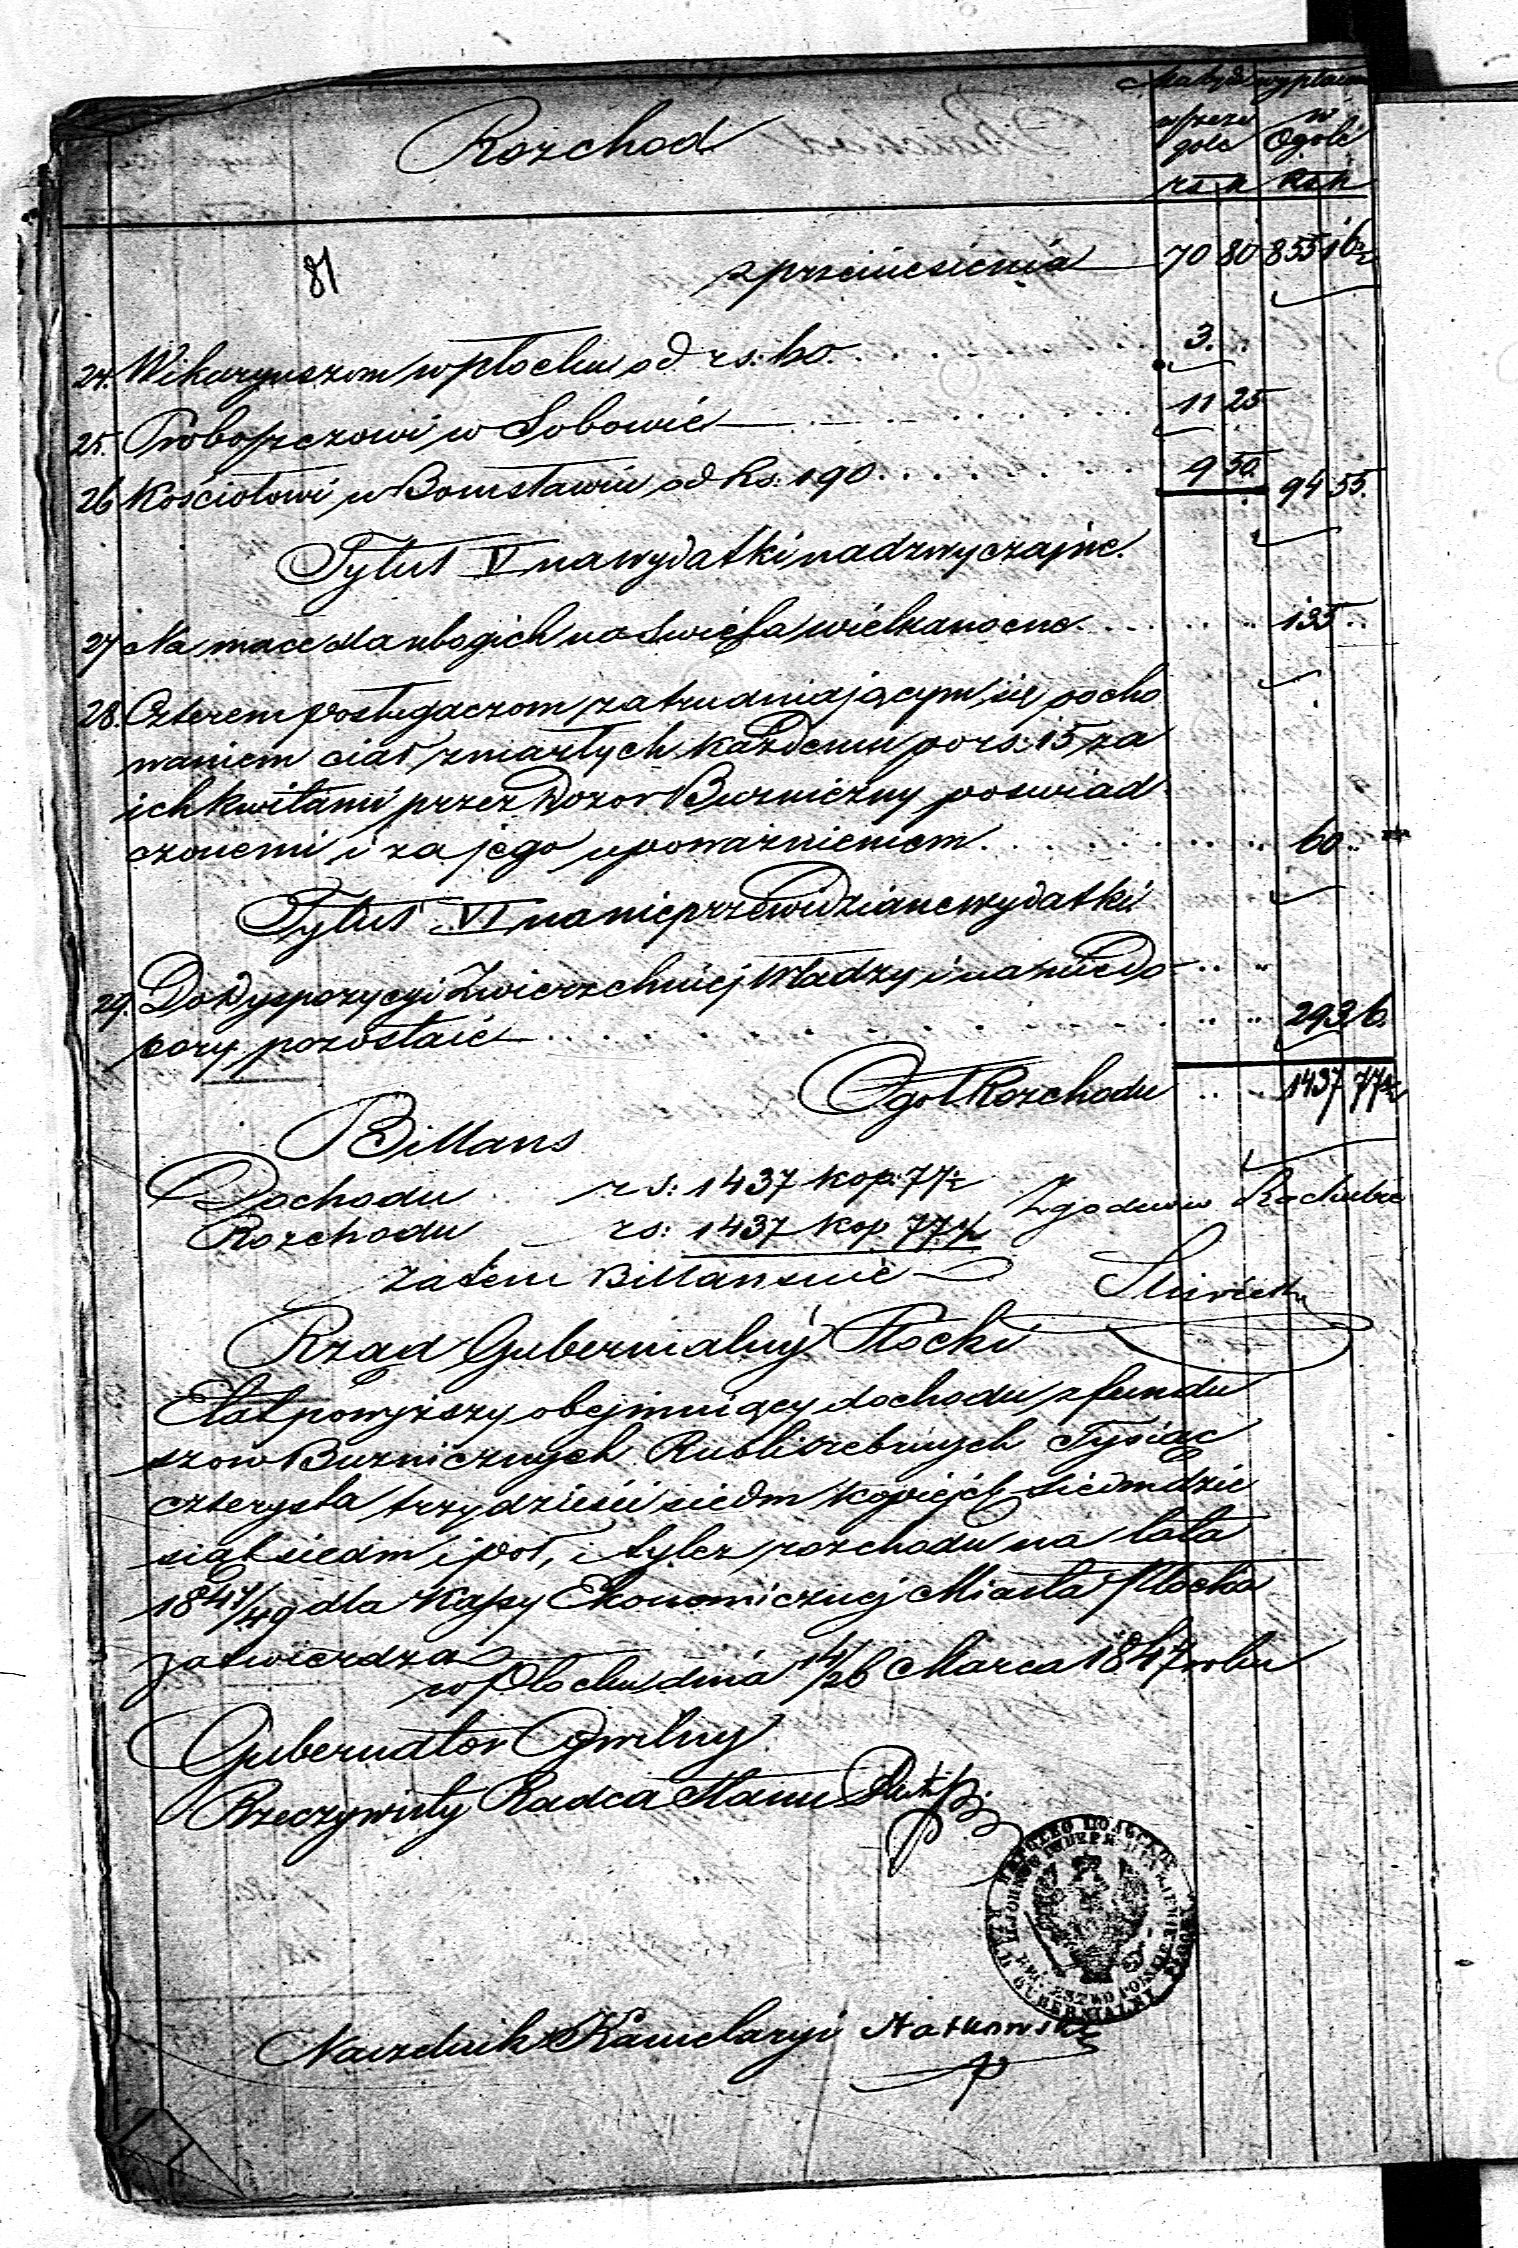 Rozchod
Ma być wypłacono
w szcze
gole
w
Ogóle
rs k Rs k
81
z przeniesienia 70 80 855 16½
24. Wikaryuszom w płocku od rs: 60. 3.
25. Proboszczowi w Sobowie 11 25
26 Kościołowi w Bonisławiu od Rs: 190 9 50. 94 55.
Tytuł V na wydatki nadzwyczajne.
27 Na mace dla ubogich na święta wielkanocne 135
28. Czterem posługaczom zatrudniającym się pocho
waniem ciał zmarłych każdemu po rs: 15 za
ich kwitami przez Dozor Bużniczny poswiad
czonemi i za jego upoważnieniem 60
Tytuł VI na nieprzewidziane wydatki
29. Do dyspozycyi Zwierzchniej Władzy i na niedo
bory pozostaie 293 6.
Ogół Rozchodu 1437 77½
Billans
Dochodu rs: 1437 kop: 77½
Rozchodu rs: 1437 kop 77½
Zgodno w Rachubie
zatem Billansuie
Rząd Gubernialny Płocki
Etat powyższy obejmuiący dochodu z fundu
szow Bużnicznych Rubli srebrnych Tysiąc
czterysta trzydzieści siedm kopiejek siedmdzie
siąt siedm i pół, i tylez rozchodu na lata
1847/49 dla Kassy Ekonomicznej Miasta Płocka
zatwierdza
w Płocku dnia 14/26 Marca 1847 roku
Gubernator Cywilny
Rzeczywisty Radca Stanu
RZĄD GUBERNIALNY
Naczelnik Kancelaryi